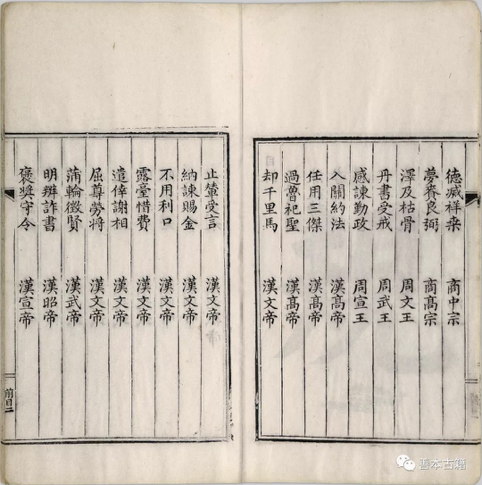 德滅祥桑 商中宗
夢賚良弼 商高宗
澤及枯骨 周文王
丹書受戒 周武王
感諫勤政 周宣王
入關約法 漢高帝
任用三傑 漢高帝
過魯祀聖 漢高帝
却千里馬 漢文帝
止輦受言 漢文帝
納諫賜金 漢文帝
不用利口 漢文帝
露臺惜費 漢文帝
遣倖謝相 漢文帝
屈尊勞將 漢文帝
蒲輪徵賢 漢武帝
明辨詐書 漢昭帝
褒奬守令 漢宣帝
前目二
善本古籍